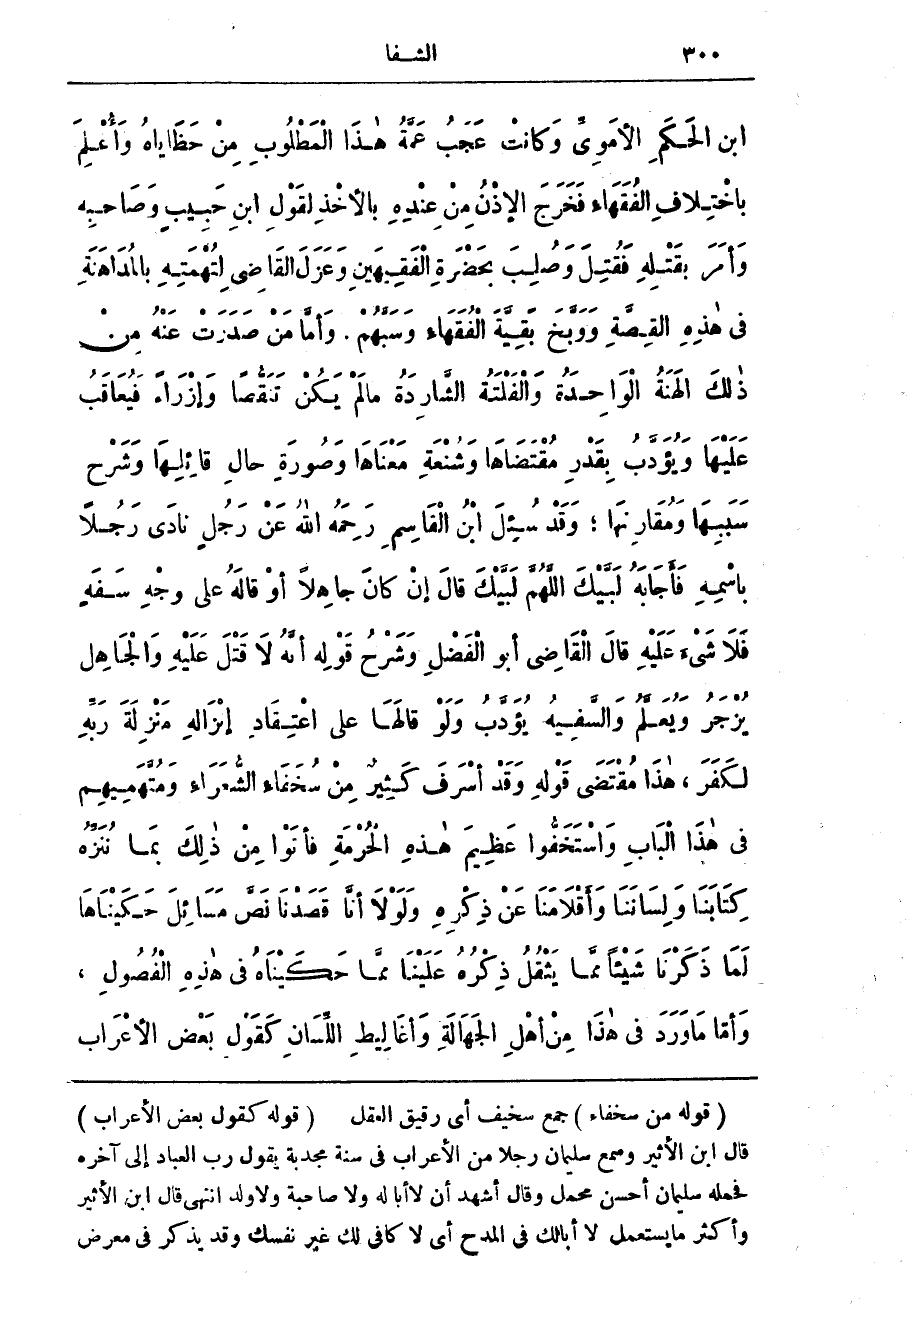 ٣٠٠ الشفا
ابن الحَكَمِ الأَمَوِىِّ وَكَانَتْ عَجَبُ عَمَّةُ هٰذَا الْمَطْلُوبِ مِنْ حَظَايَاهُ وَأُعْلِمَ
باخْتِلافِ الفُقَهَاء فَخَرَجَ الإذْنُ مِنْ عِنْدِهِ بالأخْذِ لقَوْلِ ابنِ حَبِيبٍ وَصَاحِبِه
وَأَمَرَ بِقَتْلِهِ فَقُتِلَ وَصُلِبَ بحَضْرَةِ الْفَقِيهَينِ وَعَزَلَ القَاضِى لِتُهْمَتِهِ بالْمُدَاهَنَةِ
فى هٰذِهِ القِصَّةِ وَوَبَّخَ بَقِيَّةَ الْفُقَهَاء وَسَبَّهُمْ . وَأَمَّا مَنْ صَدَرَتْ عَنْهُ مِنْ
ذٰلِكَ الهَنَةُ الْوَاحِدَةُ وَالْفَلْتَةُ الشَّارِدَةُ مالَمْ يَكُنْ تَنَقُّصًا وَإزْرَاءً فَيُعَاقَبُ
عَلَيْهَا وَيُؤَدَّبُ بِقَدْرِ مُقْتَضَاهَا وَشُنْعَةِ مَعْنَاهَا وَصُورَةِ حالِ قائِلِهَا وَشَرْحِ
سَبَبِهَا وَمُقَارِنِهَا ؛ وَقَدْ سُئِلَ ابْنُ الْقَاسِمِ رَحِمَهُ اللهُ عَنْ رَجُلٍ نادَى رَجُلاً
باسْمِهِ فَأَجَابَهُ لَبَّيْكَ اللَّهُمَّ لَبَّيْكَ قالَ إنْ كانَ جاهِلاً أوْ قالَهُ على وجْهِ سَفَهٍ
فَلَا شَىْءَ عَلَيْهِ قالَ الْقَاضِى أبو الْفَضْلِ وَشَرْحُ قَوْلِه أنَّهُ لَا قَتْلَ عَلَيْهِ وَالْجَاهِل
يُزْجَرُ وَيُعَلَّمُ وَالسَّفِيهُ يُؤَدَّبُ وَلَوْ قالَهَا على اعْتِقَادِ إنْزَالِهِ مَنْزِلَةَ رَبِّهِ
لَكَفَرَ ، هٰذَا مُقْتَضَى قَوْلِهِ وَقَدْ أَسْرَفَ كَثِيرٌ مِنْ سُخَفَاء الشُّعَرَاء وَمُتَّهَمِيهِم
فى هٰذَا الْبَابِ وَاسْتَخَفُّوا عَظِيمَ هٰذِهِ الْحُرْمَةِ فأَتَوْا مِنْ ذٰلِكَ بمَا نُنَزِّهُ
كِتَابَنَا وَلِسَانَنَا وَأَقْلَامَنَا عَنْ ذِكْرِهِ وَلَوْلَا أنَّا قَصَدْنَا نَصَّ مَسَائِلَ حَكَيْنَاهَا
لَمَا ذَكَرْنَا شَيْئاً مِمَّا يَثْقُلُ ذِكْرُهُ عَلَيْنَا مِمَّا حَكَيْنَاهُ فى هٰذِهِ الْفُصُولِ ،
وَأَمَّا مَاوَرَدَ فى هٰذَا مِنْ أَهْلِ الجَهَالَةِ وَأَغَالِيطِ اللِّسَانِ كَقَوْلِ بَعْضِ الأَعْرَابِ
( قوله من سخفاء ) جمع سخيف أى رقيق العقل ( قوله كقول بعض الأعراب )
قال ابن الأثير وسمع سليمان رجلا من الأعراب فى سنة مجدبة يقول رب العباد إلى آخره
فحمله سليمان أحسن محمل وقال أشهد أن لاأبا له ولا صاحبة ولاولد انتهى قال ابن الأثير
وأكثر مايستعمل لا أبالك فى المدح أى لا كافى لك غير نفسك وقد يذكر فى معرض